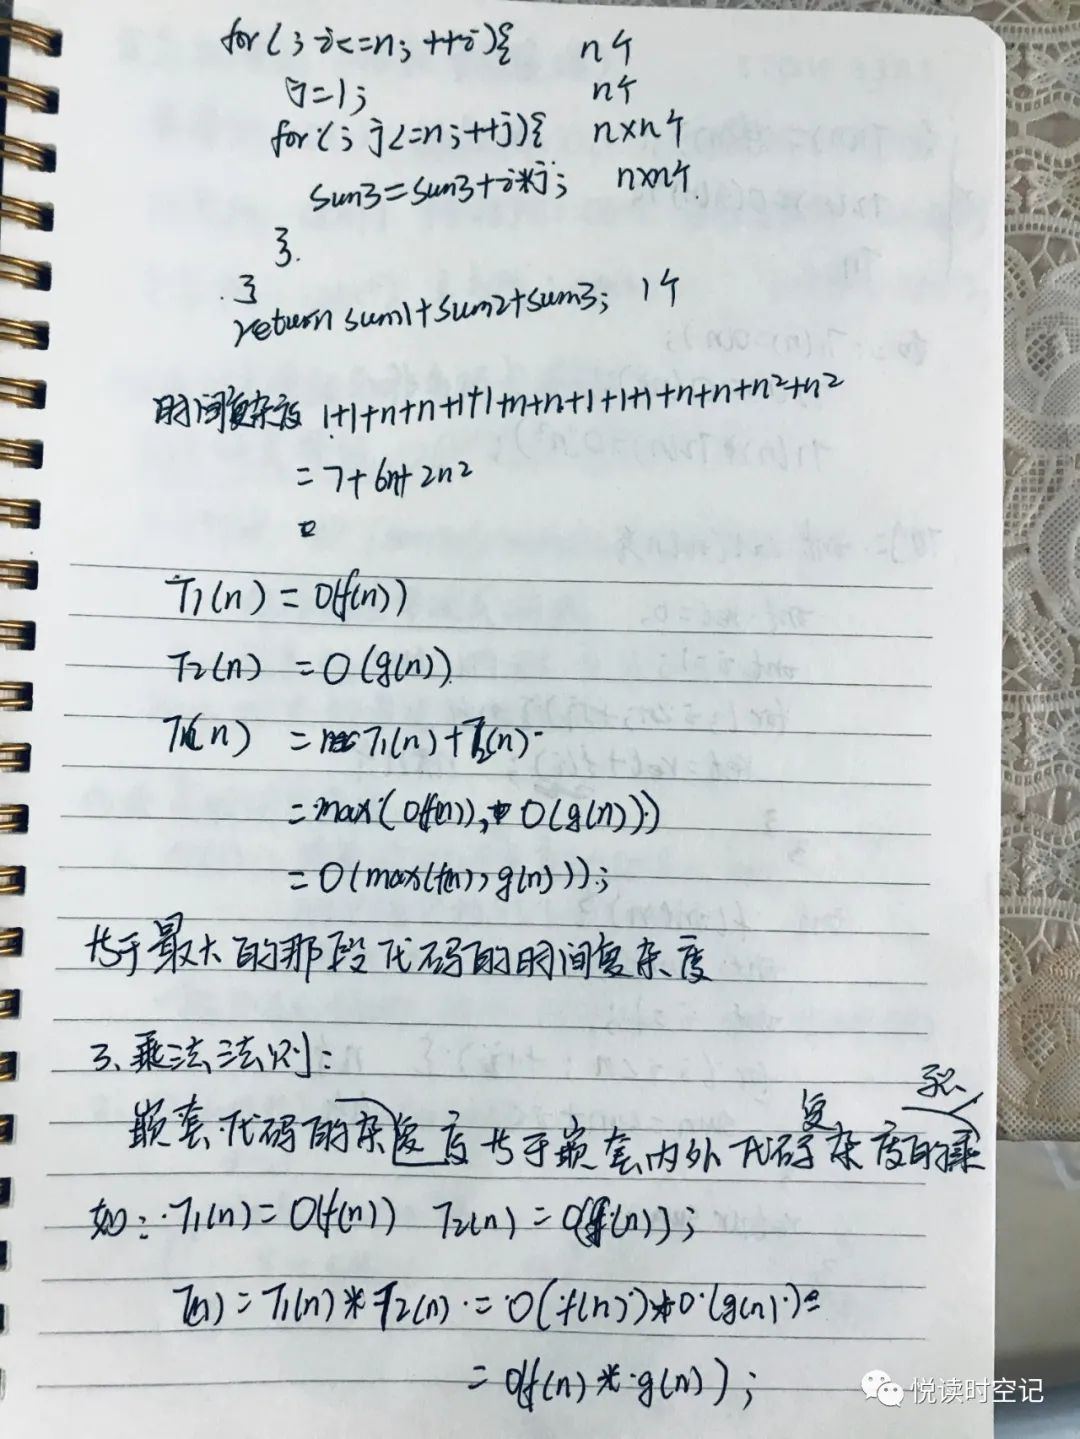 for(; i<=n; ++i){ n个
j=1; n个
for(; j<=n; ++j){ n×n个
sum3=sum3+i*j; n×n个
}
}
return sum1+sum2+sum3; 1个
时间复杂度 1+1+n+n+1+1+n+n+1+1+1+n+n+n²+n²
=7+6n+2n²
=
T1(n) = O(f(n))
T2(n) = O(g(n))
T(n) = T1(n)+T2(n)
=max(O(f(n)), O(g(n)))
=O(max(f(n), g(n)));
等于最大的那段代码的时间复杂度
3、乘法法则:
嵌套代码的杂复度等于嵌套内外代码复杂度的乘积
如: T1(n)=O(f(n)) T2(n)=O(g(n));
T(n)=T1(n)*T2(n)=O(f(n))*O(g(n))=
=O(f(n)*g(n));
悦读时空记